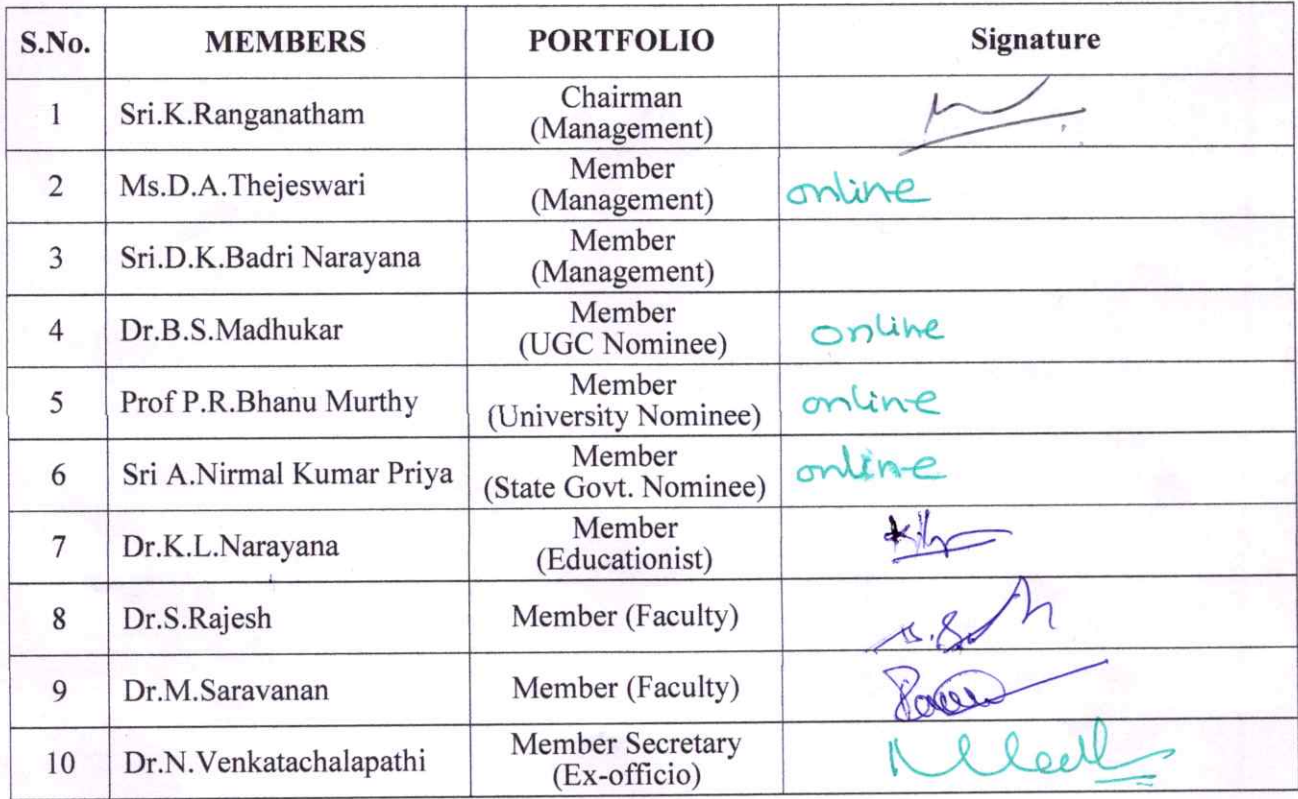 S.No. MEMBERS PORTFOLIO Signature
1 Sri.K.Ranganatham Chairman
(Management)
2 Ms.D.A.Thejeswari Member
(Management) online
3 Sri.D.K.Badri Narayana Member
(Management)
4 Dr.B.S.Madhukar Member
(UGC Nominee) online
5 Prof P.R.Bhanu Murthy Member
(University Nominee) online
6 Sri A.Nirmal Kumar Priya Member
(State Govt. Nominee) online
7 Dr.K.L.Narayana Member
(Educationist)
8 Dr.S.Rajesh Member (Faculty)
9 Dr.M.Saravanan Member (Faculty)
10 Dr.N.Venkatachalapathi Member Secretary
(Ex-officio)